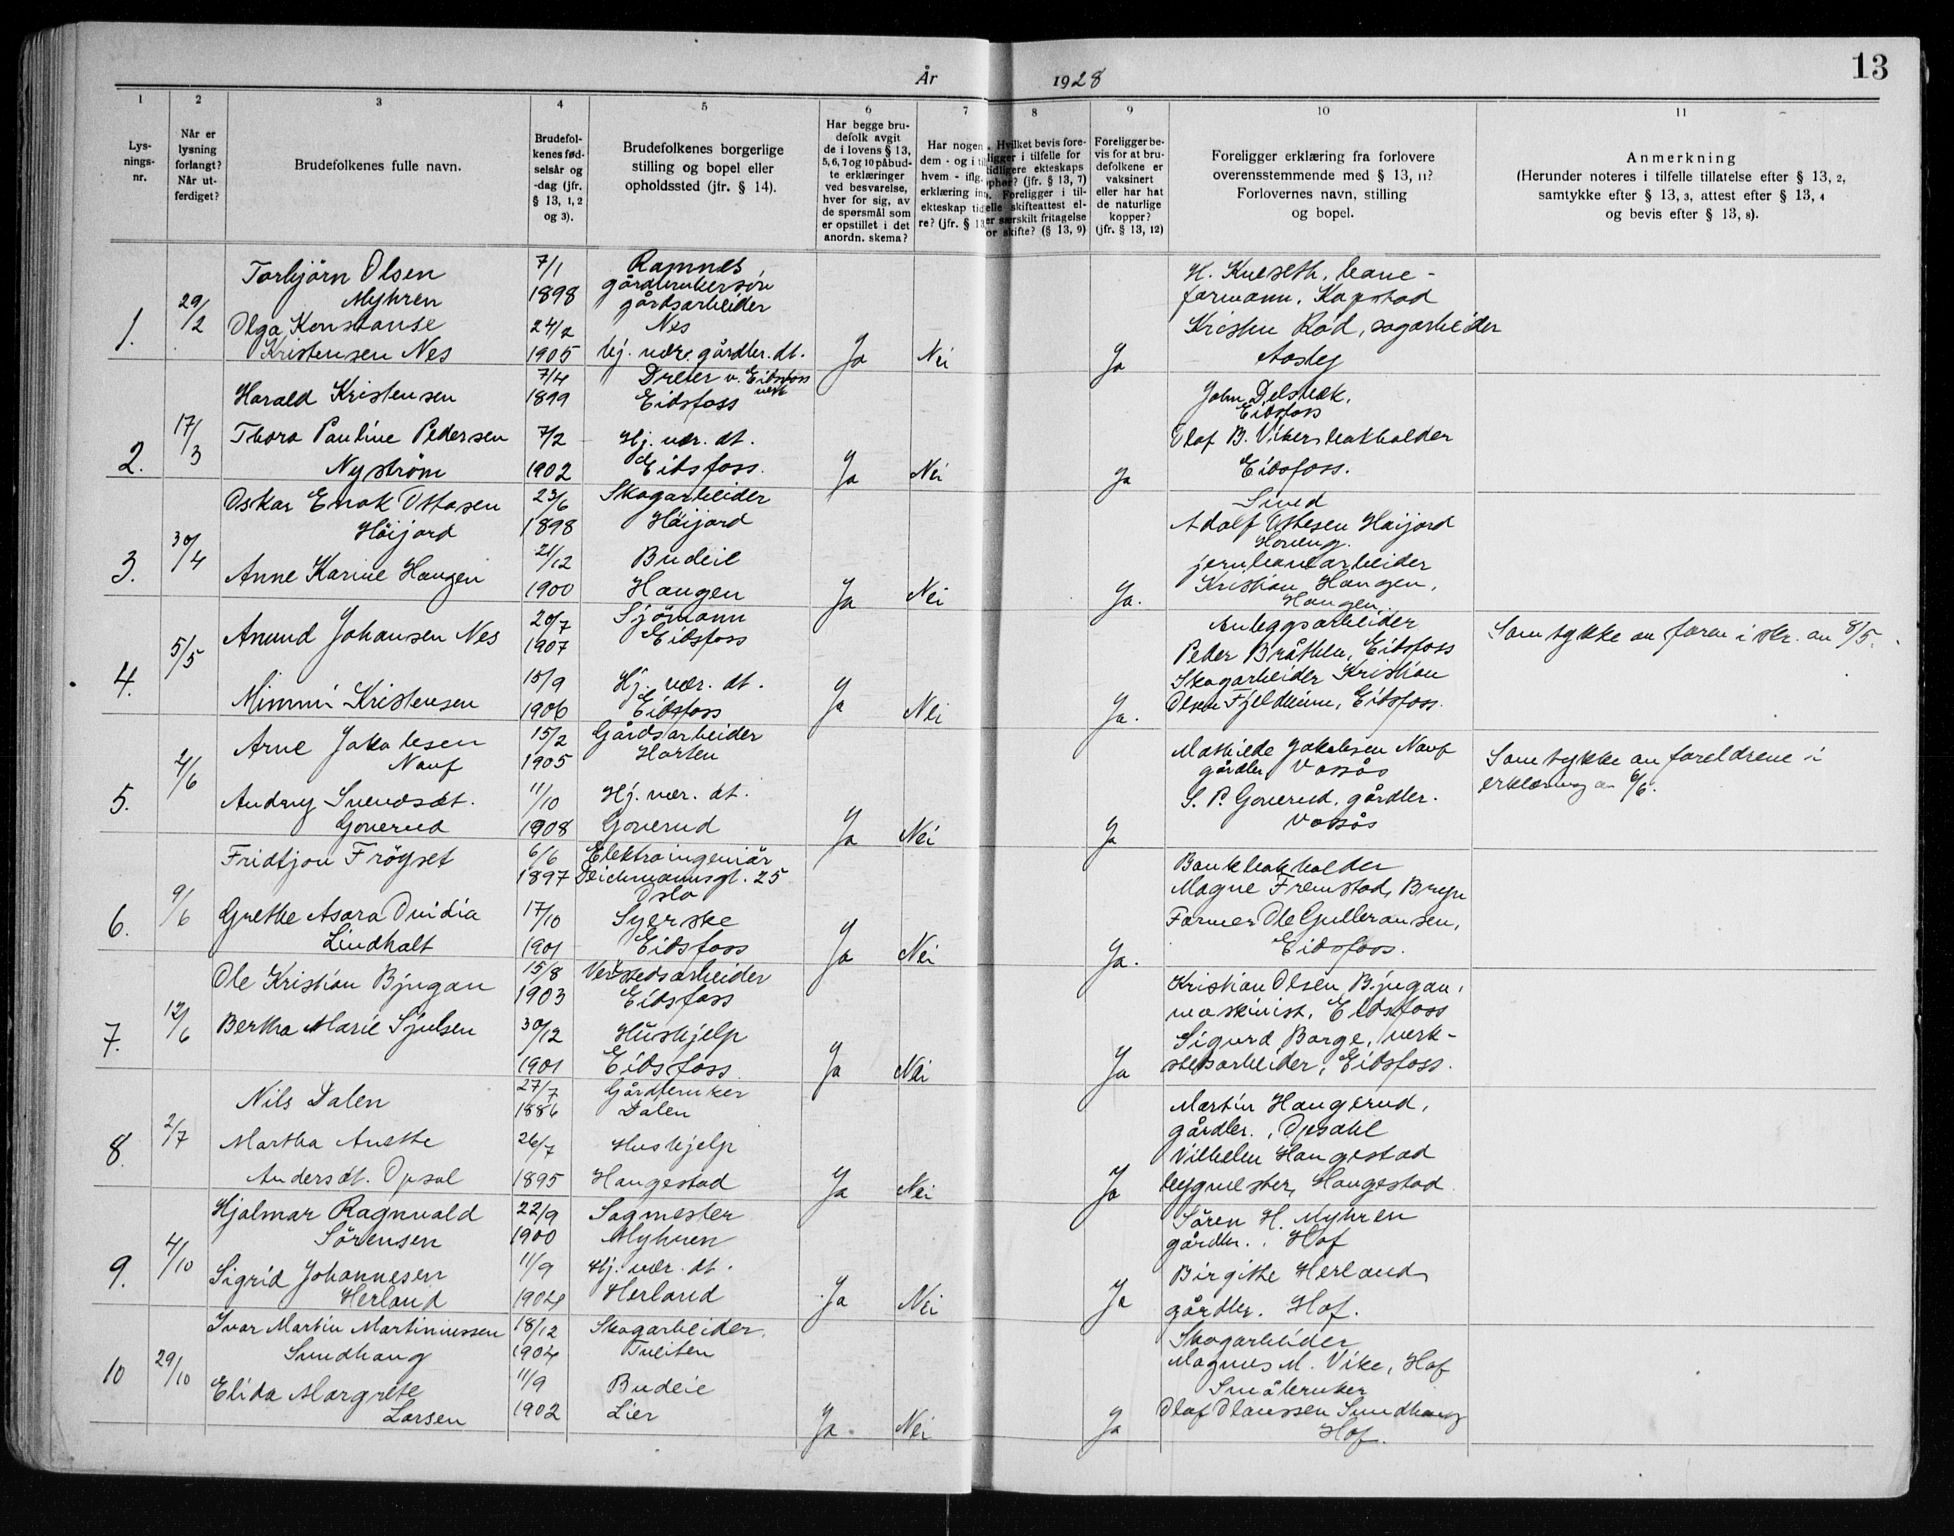 År 1928
13
1 2 3 4 5 6 7 8 9 10 11
Lys-
nings-
nr.
Når er
lysning
forlangt?
Når ut-
ferdiget?
Brudefolkenes fulle navn.
Brudefol-
kenes fød-
selsår og
-dag (jfr.
§ 13, 1, 2
og 3).
Brudefolkenes borgerlige
stilling og bopel eller
opholdssted (jfr. § 14).
Har begge bru-
defolk avgit
de i lovens § 13,
5, 6, 7 og 10 påbud-
te erklæringer
ved besvarelse,
hver for sig, av
de spørsmål som
er opstillet i det
anordn. skema?
Har nogen
dem - og i til
hvem - iflg.
erklæring in
ekteskap tid
re? (jfr. § 13
Hvilket bevis fore-
ligger i tilfelle for
tidligere ekteskaps
ophør? (jfr. § 13, 7)
Foreligger i til-
felle skifteattest el-
er særskilt fritagelse
or skifte? (§ 13, 9)
Foreligger be-
vis for at bru-
defolkene er
vaksinert
eller har hat
de naturlige
kopper?
(jfr. § 13, 12)
Foreligger erklæring fra forlovere
overensstemmende med § 13, 11?
Forlovernes navn, stilling
og bopel.
Anmerkning
(Herunder noteres i tilfelle tillatelse efter § 13, 2,
samtykke efter § 13, 3, attest efter § 13, 4
og bevis efter § 13, 8).
1.
29/2
Torbjörn Olsen
Myhren
Olga Konstanse
Kristensen Nes
7/1
1898
24/2
1905
Ramnes
gårdbrukersön
gårdsarbeider
Nes
hj. vær. gårdbr. dt.
Ja
Nei
Ja
H. Kneseth, bane-
formann, Kopstad
Kristen Röd, sagarbeider
Aasby
2.
17/3
Harald Kristensen
Thora Pauline Pedersen
Nyström
7/4
1899
7/2
1902
Dreier v. Eidsfoss
verk
Eidsfoss
Hj. vær. dt.
Eidsfoss.
Ja
Nei
Ja
John
Eidsfoss
Olaf B. bokholder
Eidsfoss.
3.
30/4
Oskar Enok Ottosen
Höijord
Anne Karine Haugen
23/6
1898
21/12
1900
Skogarbeider
Höijord
Budeie
Haugen
Ja
Nei
Ja.
Adolf Ottesen Höijord
jernbanearbeider
Kristian Haugen,
Haugen
4.
5/5
Anund Johansen Nes
Mimmi Kristensen
20/7
1907
15/9
1906
Sjömann
Eidsfoss
Hj. vær. dt.
Eidsfoss
Ja
Nei
Ja.
Anleggsarbeider
Peder Bråthen, Eidsfoss
Skogarbeider Kristian
Olsen Fjeldheim, Eidsfoss.
Samtykke av faren i skr. av 8/5.
5.
2/6
Arne Jakobsen
Nauf
Audny Svendsdt.
Goverud
15/2
1905
11/10
1908
Gårdsarbeider
Horten
Hj. vær. dt.
Goverud
Ja
Nei
Ja
Mathilde Jakobsen Nauf
gårdbr Vassås
S. P. Goverud, gårdbr.
Vassås
Samtykke av foreldrene i
erklæring av 6/6.
6.
9/6
Fridtjon Fröyset
Grethe Asora Ovidia
Lindholt
6/6
1897
17/10
1901
Elektroingeniör
Deichmannsgt. 25
Oslo
Syerske
Eidsfoss
Ja
Nei
Ja.
Bankbokholder
Magne Fremstad, Bryn
Former Ole Gulleransen,
Eidsfoss.
7.
12/6
Ole Kristian Bjugan
Bertha Marie Sjulsen
15/8
1903
30/12
1901
Verkstedsarbeider
Eidsfoss
Hushjelp
Eidsfoss.
Ja
Nei
Ja
Kristian Olsen Bjugan,
maskinist, Eidsfoss
Sigurd Borge, verk-
stedsarbeider, Eidsfoss.
8.
2/7
Nils Dalen
Martha Anette
Andersdt. Opsal
27/7
1886
26/7
1895
Gårdbruker
Dalen
Hushjelp
Haugestad
Ja
Nei
Ja
Martin Haugerud,
gårdbr., Opsahl
Vilhelm Haugestad
bygmester, Haugestad
9.
4/10
Hjalmar Ragnvald
Sörensen
Sigrid Johannesen
Herland
22/9
1900
11/9
1904
Sagmester
Myhren
Hj. vær. dt.
Herland
Ja
Nei
Ja
Sören H. Myhren
gårdbr., Hof
Birgithe Herland,
gårdbr. Hof.
10
29/10
Ivar Martin Martinussen
Sundhaug
Elida Margrete
Larsen
18/12
1904
11/9
1902
Skogarbeider,
Tveiten
Budeie
Lier
Ja.
Nei
Ja
Skogarbeider
Magnus M. Vike, Hof
Småbruker
Olaf Olaussen Sundhaug
Hof.